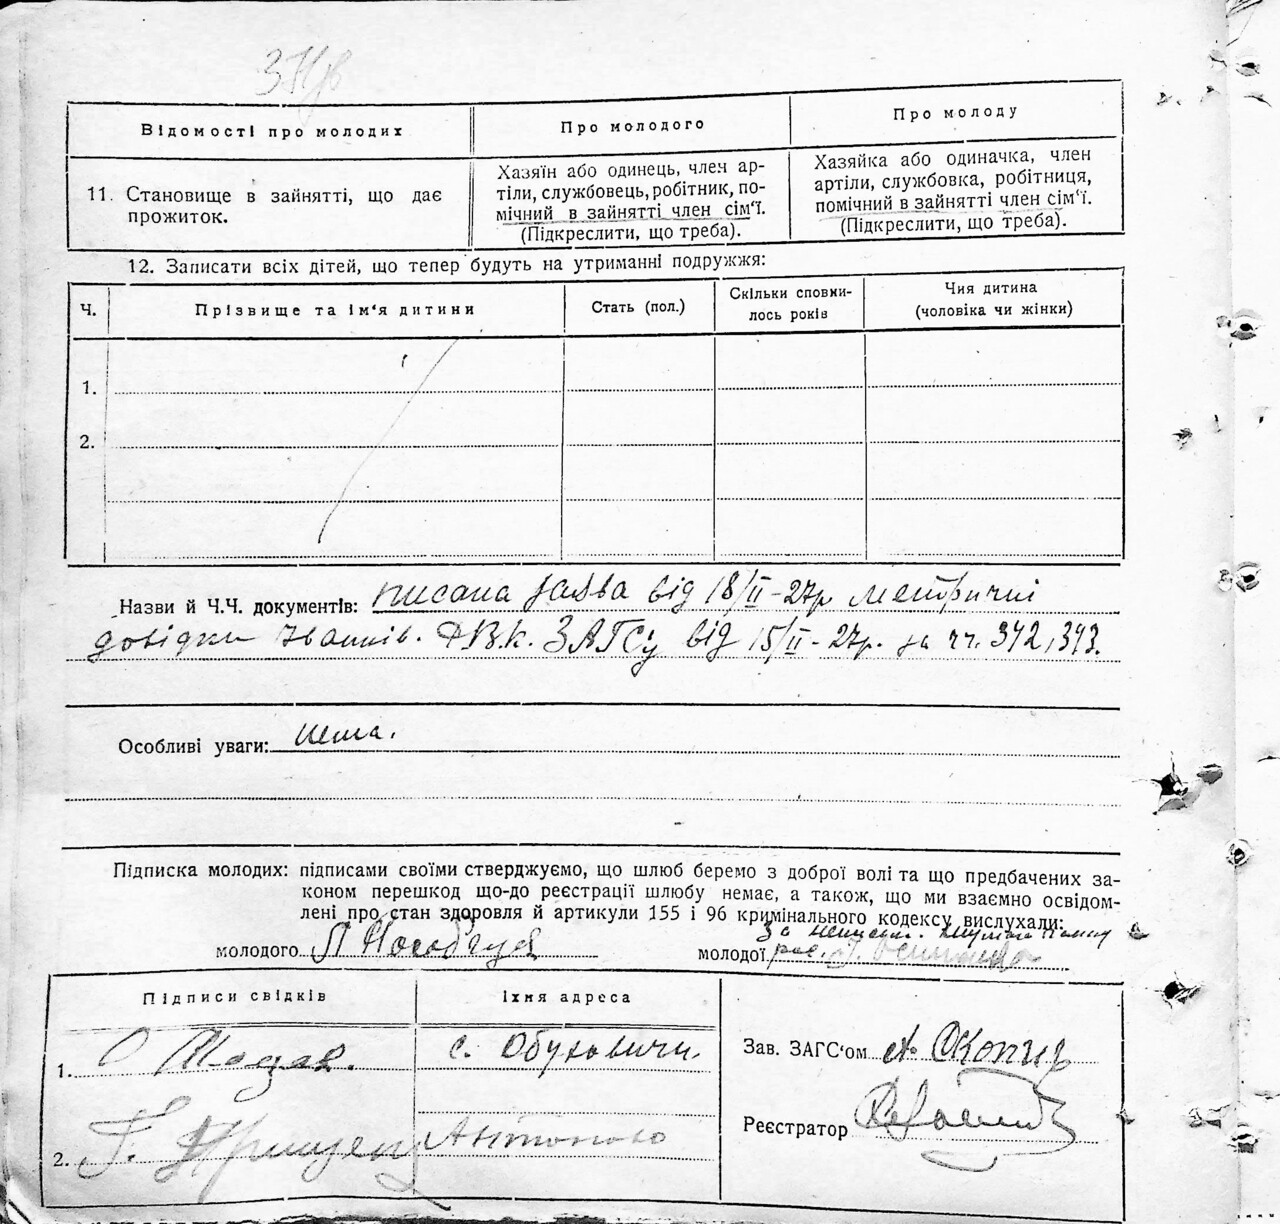 Відомості про молодих
Про молодого
Про молоду
11. Становище в зайнятті, що дає
прожиток.
Хазяїн або одинець, член ар-
тіли, службовець, робітник, по-
мічний в зайнятті член сім'ї.
(Підкреслити, що треба).
Хазяйка або одиначка, член
артіли, службовка, робітниця,
помічний в зайнятті член сім'ї.
(Підкреслити, що треба).
12. Записати всіх дітей, що тепер будуть на утриманні подружжя:
Ч.
Прізвище та ім'я дитини
Стать (пол.)
Скільки сповни-
лось років
Чия дитина
(чоловіка чи жінки)
1.
2.
Назви й Ч.Ч. документів: писана заява від 18/II-27р метричні
довідки Іванків. РВ.К. ЗАГСу від 15/II-27р. за чч. 342, 343.
Особливі уваги: нема.
Підписка молодих: підписами своїми стверджуємо, що шлюб беремо з доброї волі та що предбачених за-
коном перешкод що-до реєстрації шлюбу немає, а також, що ми взаємно освідом-
лені про стан здоровля й артикули 155 і 96 кримінального кодексу вислухали:
молодого
молодої
за неписьм.
Підписи свідків
Їхня адреса
1.
с. Обуховичи.
2. Г. Грищен
Зав. ЗАГС'ом
Реєстратор